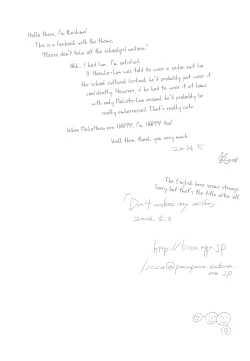 Hello there, I'm Rashino!
This is a fanbook with the theme,
"Please don't take off the schoolgirl uniform."
Ahh.. I had fun.. I'm satisfied.
If Haruka-san was told to wear a sailor suit for
the school cultural festival, he'd probably just wear it
confidently. However, if he had to wear it at home
with only Makoto-kun around, he'd probably be
really embarrassed. That's really cute.
When MakoHaru are HAPPY, I'm HAPPY too!
Well then, thank you very much.
2014. 5
The English here seems strange.
Sorry but that's the title after all.
「Don't undress my sailor」
2014. 5. 3